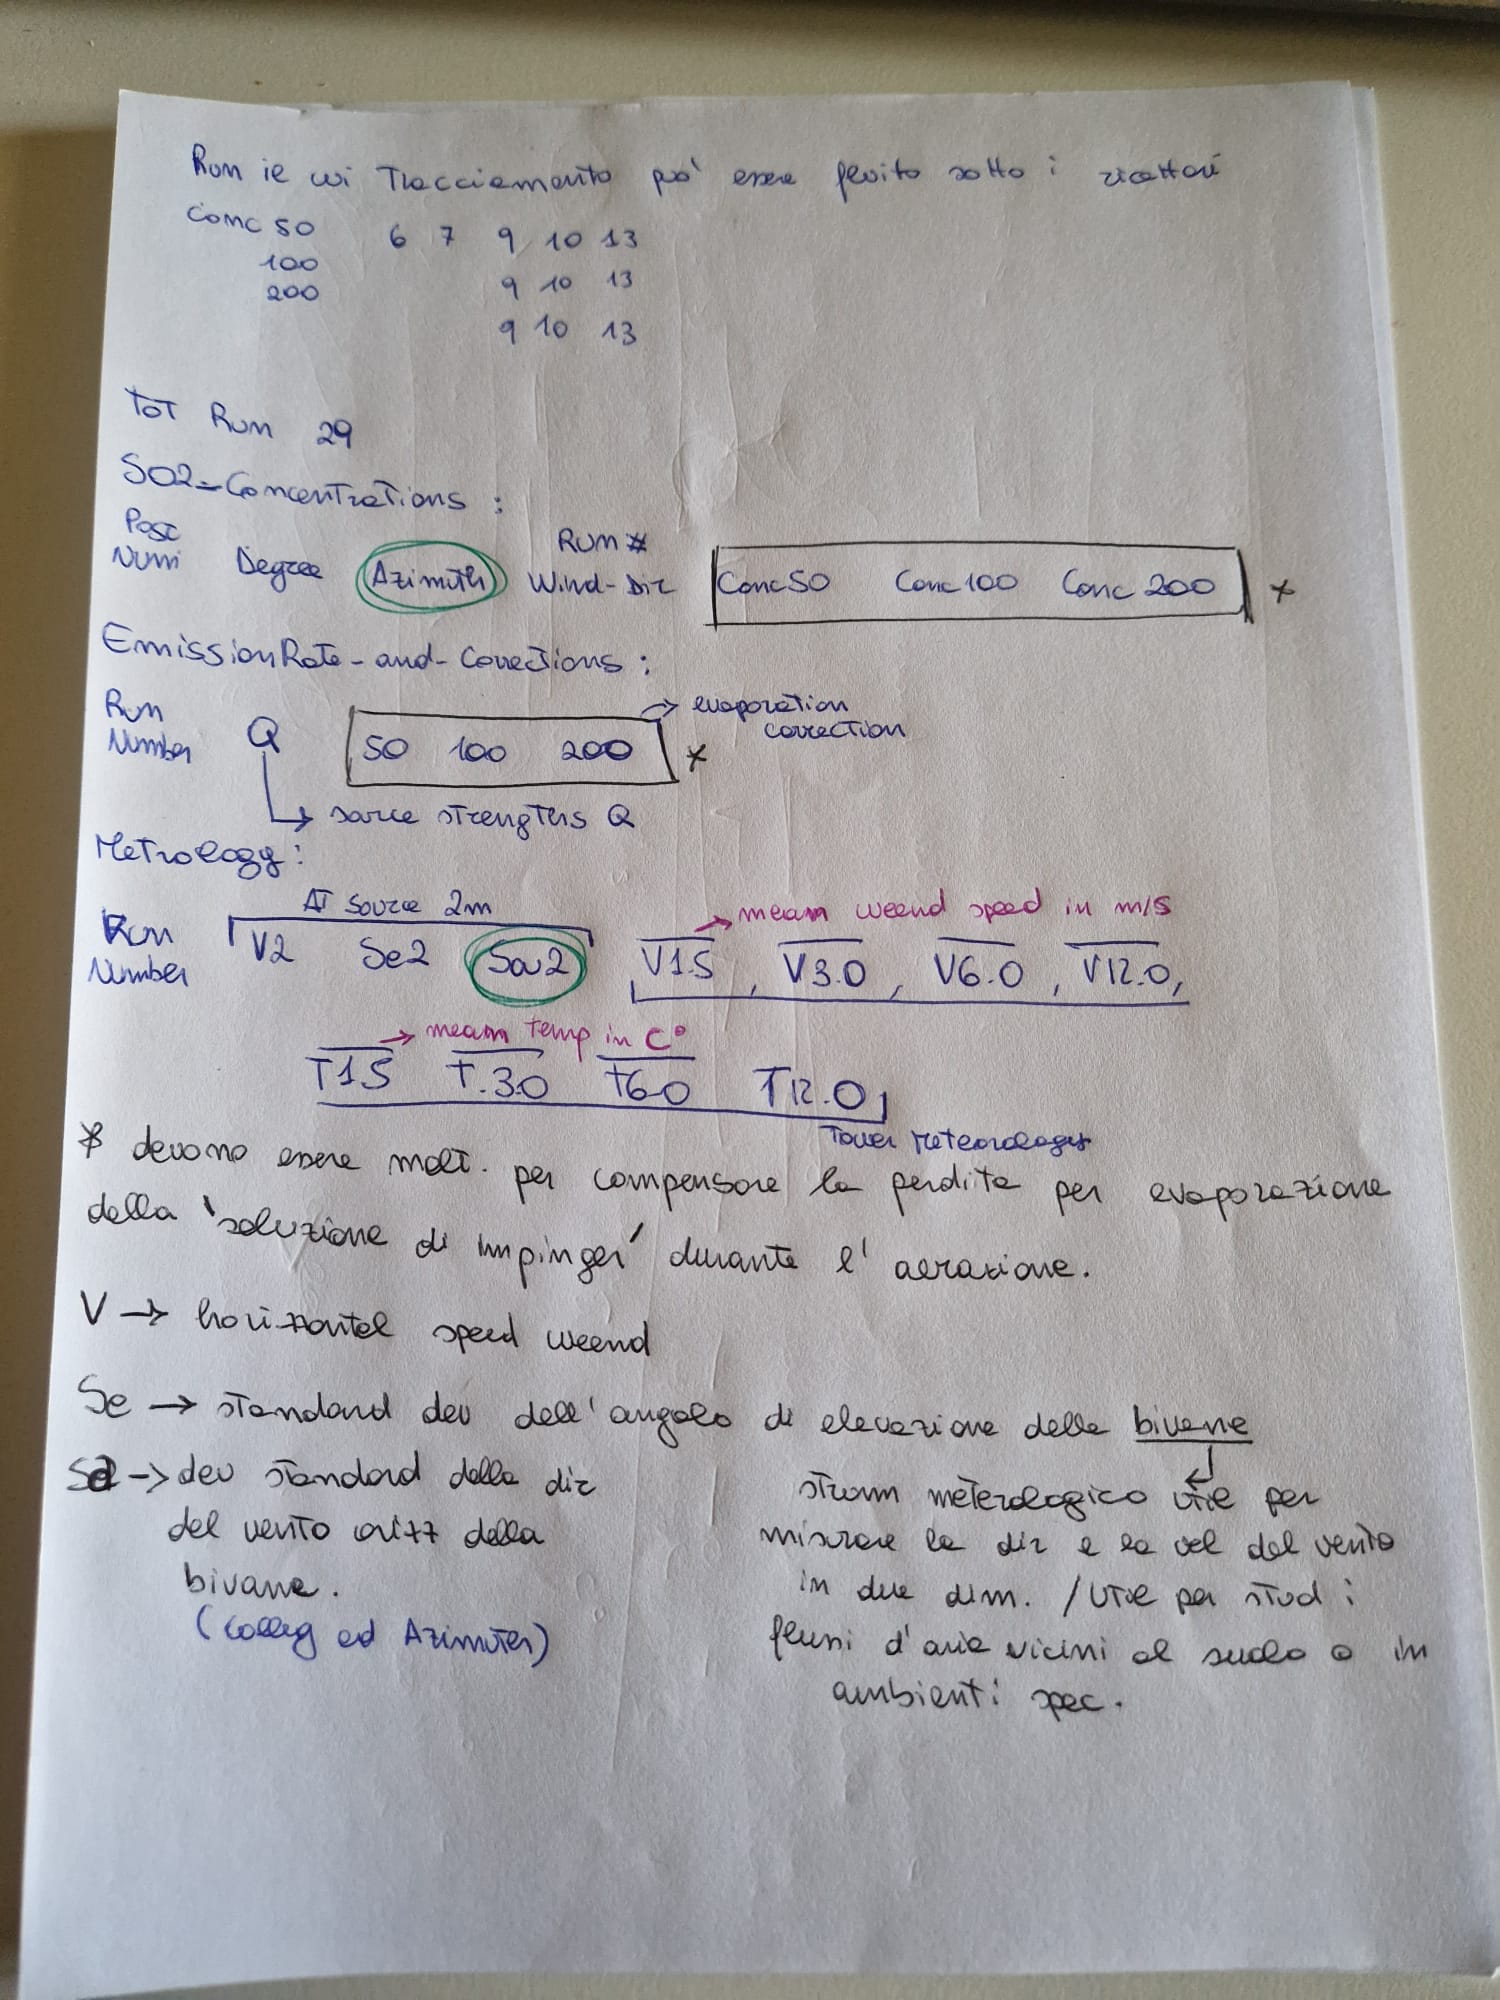 Run ie cui Tracciamento può essere finito sotto i ricettori
Conc 50 6 7 9 10 13
100 9 10 13
200 9 10 13
TOT Run 29
SO2-Concentrations :
Post Num Degree Azimuth Run # Wind-Dir Conc50 Conc100 Conc 200 *
EmissionRate-and-Corrections :
Run Number Q 50 100 200 * → evaporation correction
↳ source strengths Q
Metrology :
AT source 2m → mean weend speed in m/s
Run Number V2 Se2 Sa2 V1.5 , V3.0 , V6.0 , V12.0,
→ mean temp in C°
T1.5 T.30 T6.0 T12.0
Tower Meteorology
* devono essere molt. per compensare la perdita per evaporazione
della 'soluzione di impinger' durante l' aerazione.
V → horizontal speed weend
Se → standard dev dell'angolo di elevazione delle bivane
Sa → dev standard della dir
del vento orizz della
bivane.
(colleg ad Azimuth)
strum meterologico utile per
misurare la dir e la vel del vento
in due dim. / utile per stud i
flussi d'aria vicini al suolo o in
ambienti spec.